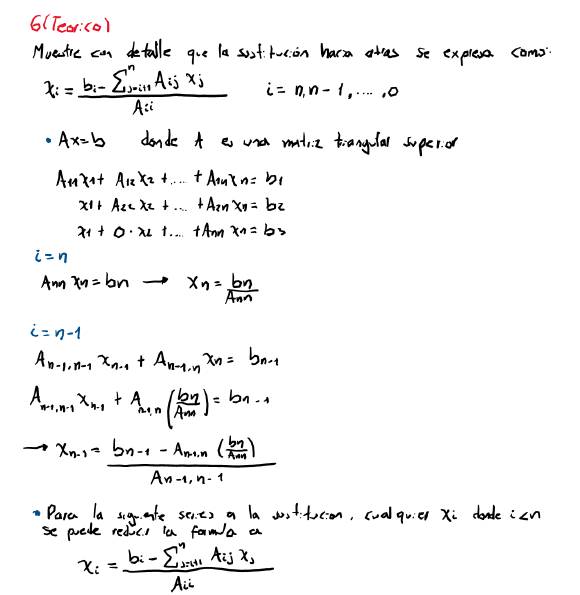 6(Teorico)
Muestre con detalle que la sustitución hacia atras se expresa como:
xi = bi - Σ^n_{j=i+1} Aij xj / Aii   i = n, n-1, ...., 0
• Ax=b donde A es una matriz triangular superior
A11x1 + A12 x2 + .... + A1n xn = b1
x1 + A22 x2 + ... + A2n xn = b2
x1 + 0 · x2 + .... + Ann xn = b3
i = n
Ann xn = bn → xn = bn/Ann
i = n-1
An-1,n-1 xn-1 + An-1,n xn = bn-1
An-1,n-1 xn-1 + An-1,n (bn/Ann) = bn-1
→ xn-1 = bn-1 - An-1,n (bn/Ann) / An-1,n-1
• Para la siguiente series a la sustitucion, cualquier xi donde i<n
se puede reducir la formula a
xi = bi - Σ^n_{j=i+1} Aij xj / Aii